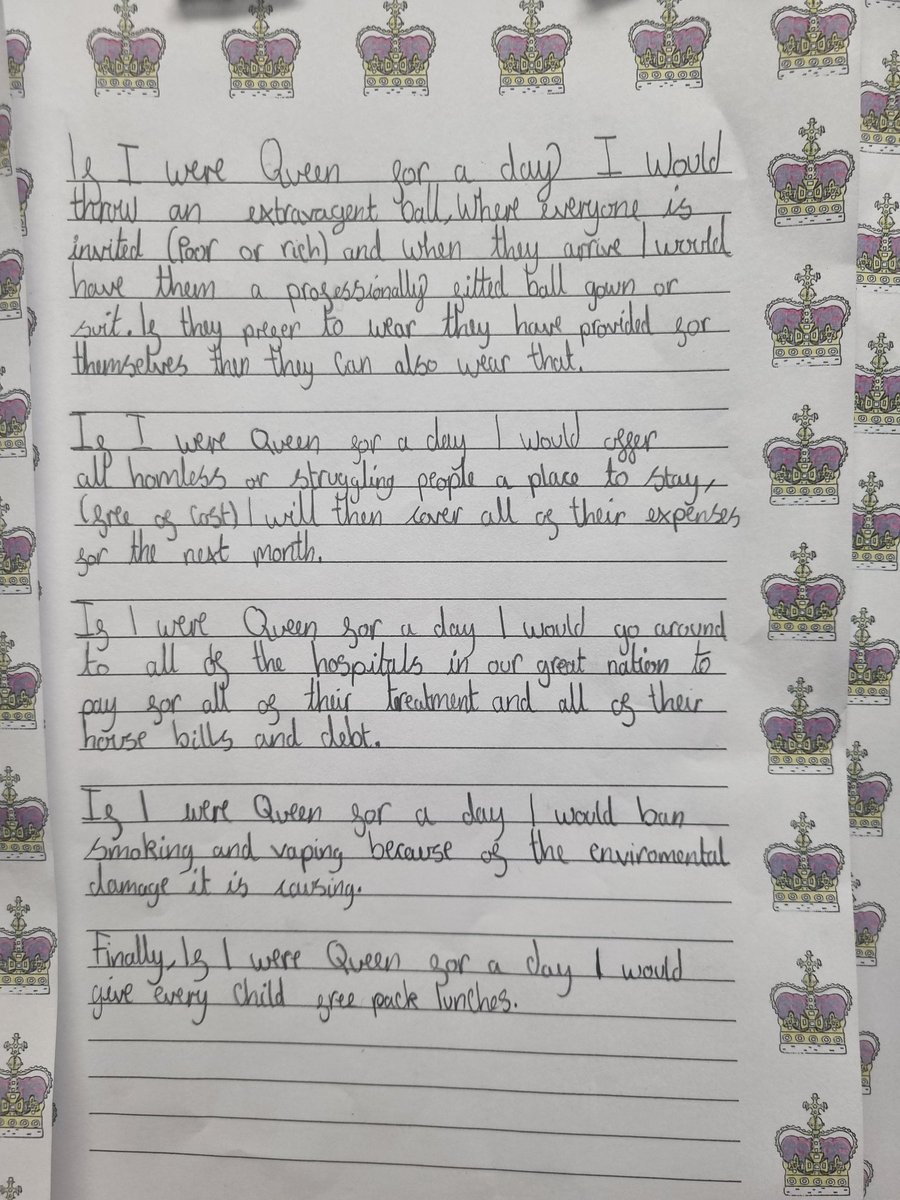 If I were Queen for a day, I would
throw an extravagent ball, where everyone is
invited (Poor or rich) and when they arrive I would
have them a professionally fitted ball gown or
suit. If they prefer to wear they have provided for
themselves then they can also wear that.
If I were Queen for a day I would offer
all homless or struggling people a place to stay,
(free of cost) I will then cover all of their expenses
for the next month.
If I were Queen for a day I would go around
to all of the hospitals in our great nation to
pay for all of their treatment and all of their
house bills and debt.
If I were Queen for a day I would ban
smoking and vaping because of the enviromental
damage it is causing.
Finally, If I were Queen for a day I would
give every child free pack lunches.